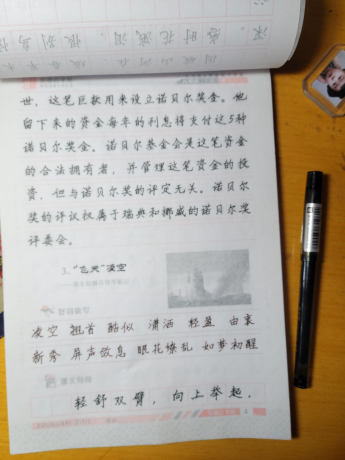 世，这笔巨款用来设立诺贝尔奖金。他
留下来的资金每年的利息得支付这5种
诺贝尔奖金。诺贝尔基金会是这笔资金
的合法拥有者，并管理这笔资金的投
资，但与诺贝尔奖的评定无关。诺贝尔
奖的评议权属于瑞典和挪威的诺贝尔奖
评委会。
3.“飞天”凌空
好词佳句
凌空 翘首 酷似 潇洒 轻盈 由衷
新秀 屏声敛息 眼花缭乱 如梦初醒
轻舒双臂，向上举起，